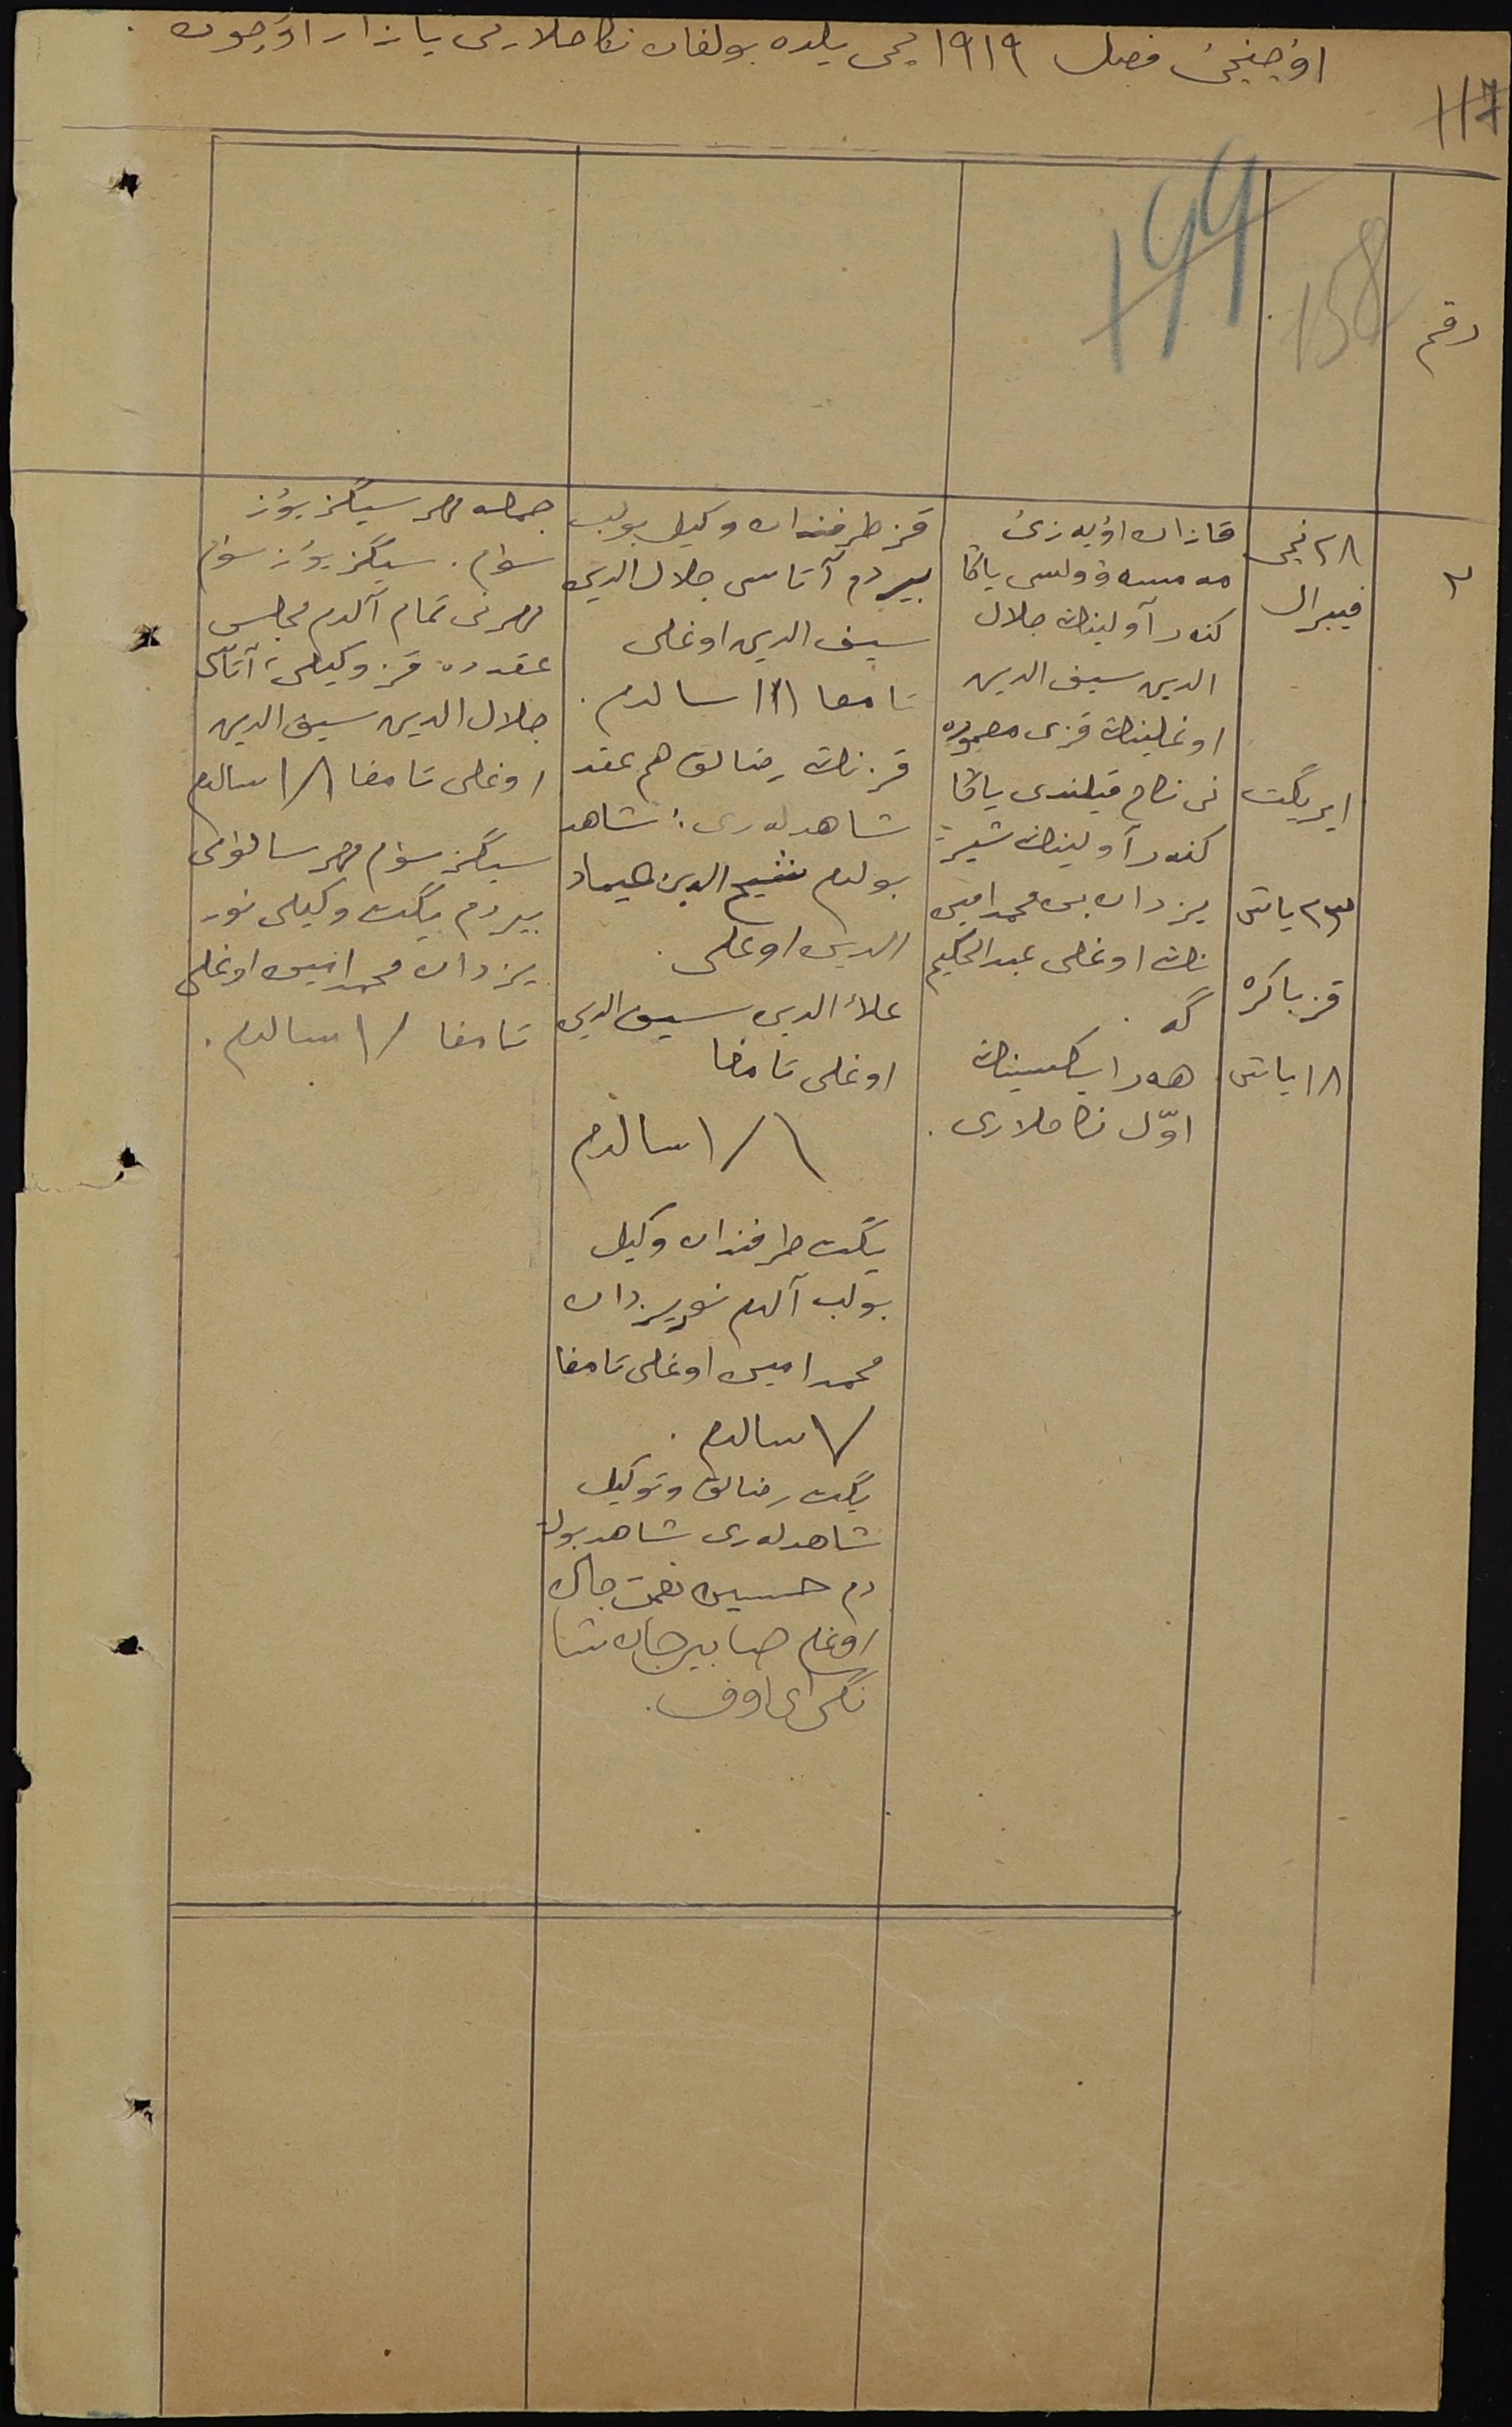 اۋچنچئ فصل ١٩١٩ نچی یلده بولغان نكاحلارنی یازار اۋچون.
117
199
158
رقم
٢
٢٨ نچی
فیبرال
ایر یگت
٢٣ یاش
قز باكره
١٨ یاش
قازان اۋیەزئ
مەمسە ۋولسی یاڭا
كنەر آولیننڭ جلال
الدین سیف الدین
اوغلیننڭ قزی معموره
نی نكاح قیلندی یاڭا
كنەر آولیننڭ شیر
یزدان بن محمد امین
ننڭ اوغلی عبد الحكیم
گە.
هەر ایكیسیننڭ
اوّل نكاحلاری.
قز طرفندان وكیل بولب
بیردم آتاسی جلال الدین
سیف الدین اوغلی
تامغا ١٢١ سالدم.
قزننڭ رضالق هم عقد
شاهدلەری: شاهد
بولدم شیخ الدین عیماد
الدین اوغلی.
علاء الدین سیف الدین
اوغلی تامغا
\ / ١ سالدم
یگت طرفندان وكیل
بولب آلدم نور یزدان
محمد امین اوغلی تامغا
\/ سالدم.
یگت رضالق و توكیل
شاهدلەری شاهد بول
دم حسین نعمت جان
اوغلی صابیرجان شا
نگرای اوف.
جمله مهر سیگز یۇز
سۇم. سیگز یۇز سۇم
مهرنی تمام آلدم مجلس
عقدده قز وكیلی، آتاسی
جلال الدین سیف الدین
اوغلی تامغا ١/١ سالدم
سیگز سۇم مهر سالۇنی
بیردم یگت وكیلی نور
یزدان محمد امین اوغلی
تامغا \/ سالدم.